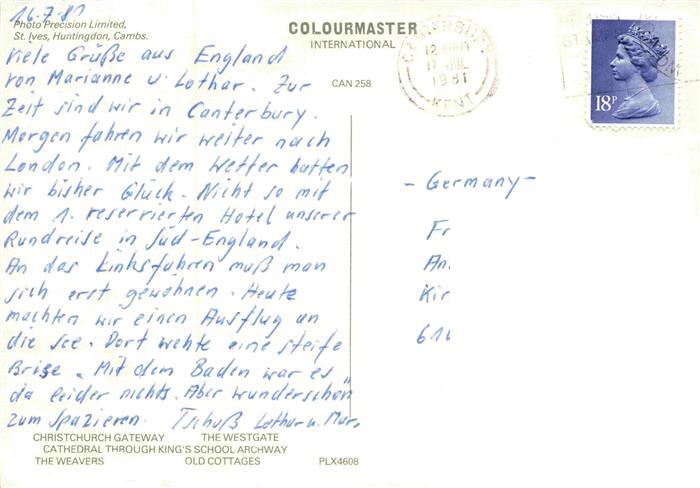 16.7.81
Photo Precision Limited,
St. Ives, Huntingdon, Cambs.
COLOURMASTER
INTERNATIONAL
CAN 258
CANTERBURY
12
17 JUL
1981
KENT
18P
Viele Grüße aus England
von Marianne u. Lothar. Zur
Zeit sind wir in Canterbury.
Morgen fahren wir weiter nach
London. Mit dem Wetter hatten
wir bisher Glück. Nicht so mit
dem 1. reservierten Hotel unserer
Rundreise in Süd-England.
An das Linksfahren muß man
sich erst gewöhnen. Heute
machten wir einen Ausflug an
die See. Dort wehte eine steife
Brise. Mit dem Baden war es
da leider nichts. Aber wunderschön
zum Spazieren. Tschüß Lothar u. Mar.
- Germany -
Fr
An
Kir
616
CHRISTCHURCH GATEWAY THE WESTGATE
CATHEDRAL THROUGH KING'S SCHOOL ARCHWAY
THE WEAVERS OLD COTTAGES PLX4608